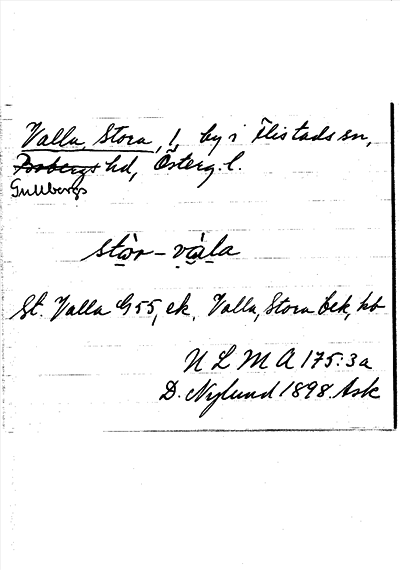 Valla, Stora, 1, by i Flistads sn,
Bobergs hd, Österg. l.
Gullbergs
stòr-vàla
St. Valla G55, ek. Valla, Stora bek, kb
N L M A 175:3a
D. Nylund 1898. Ask